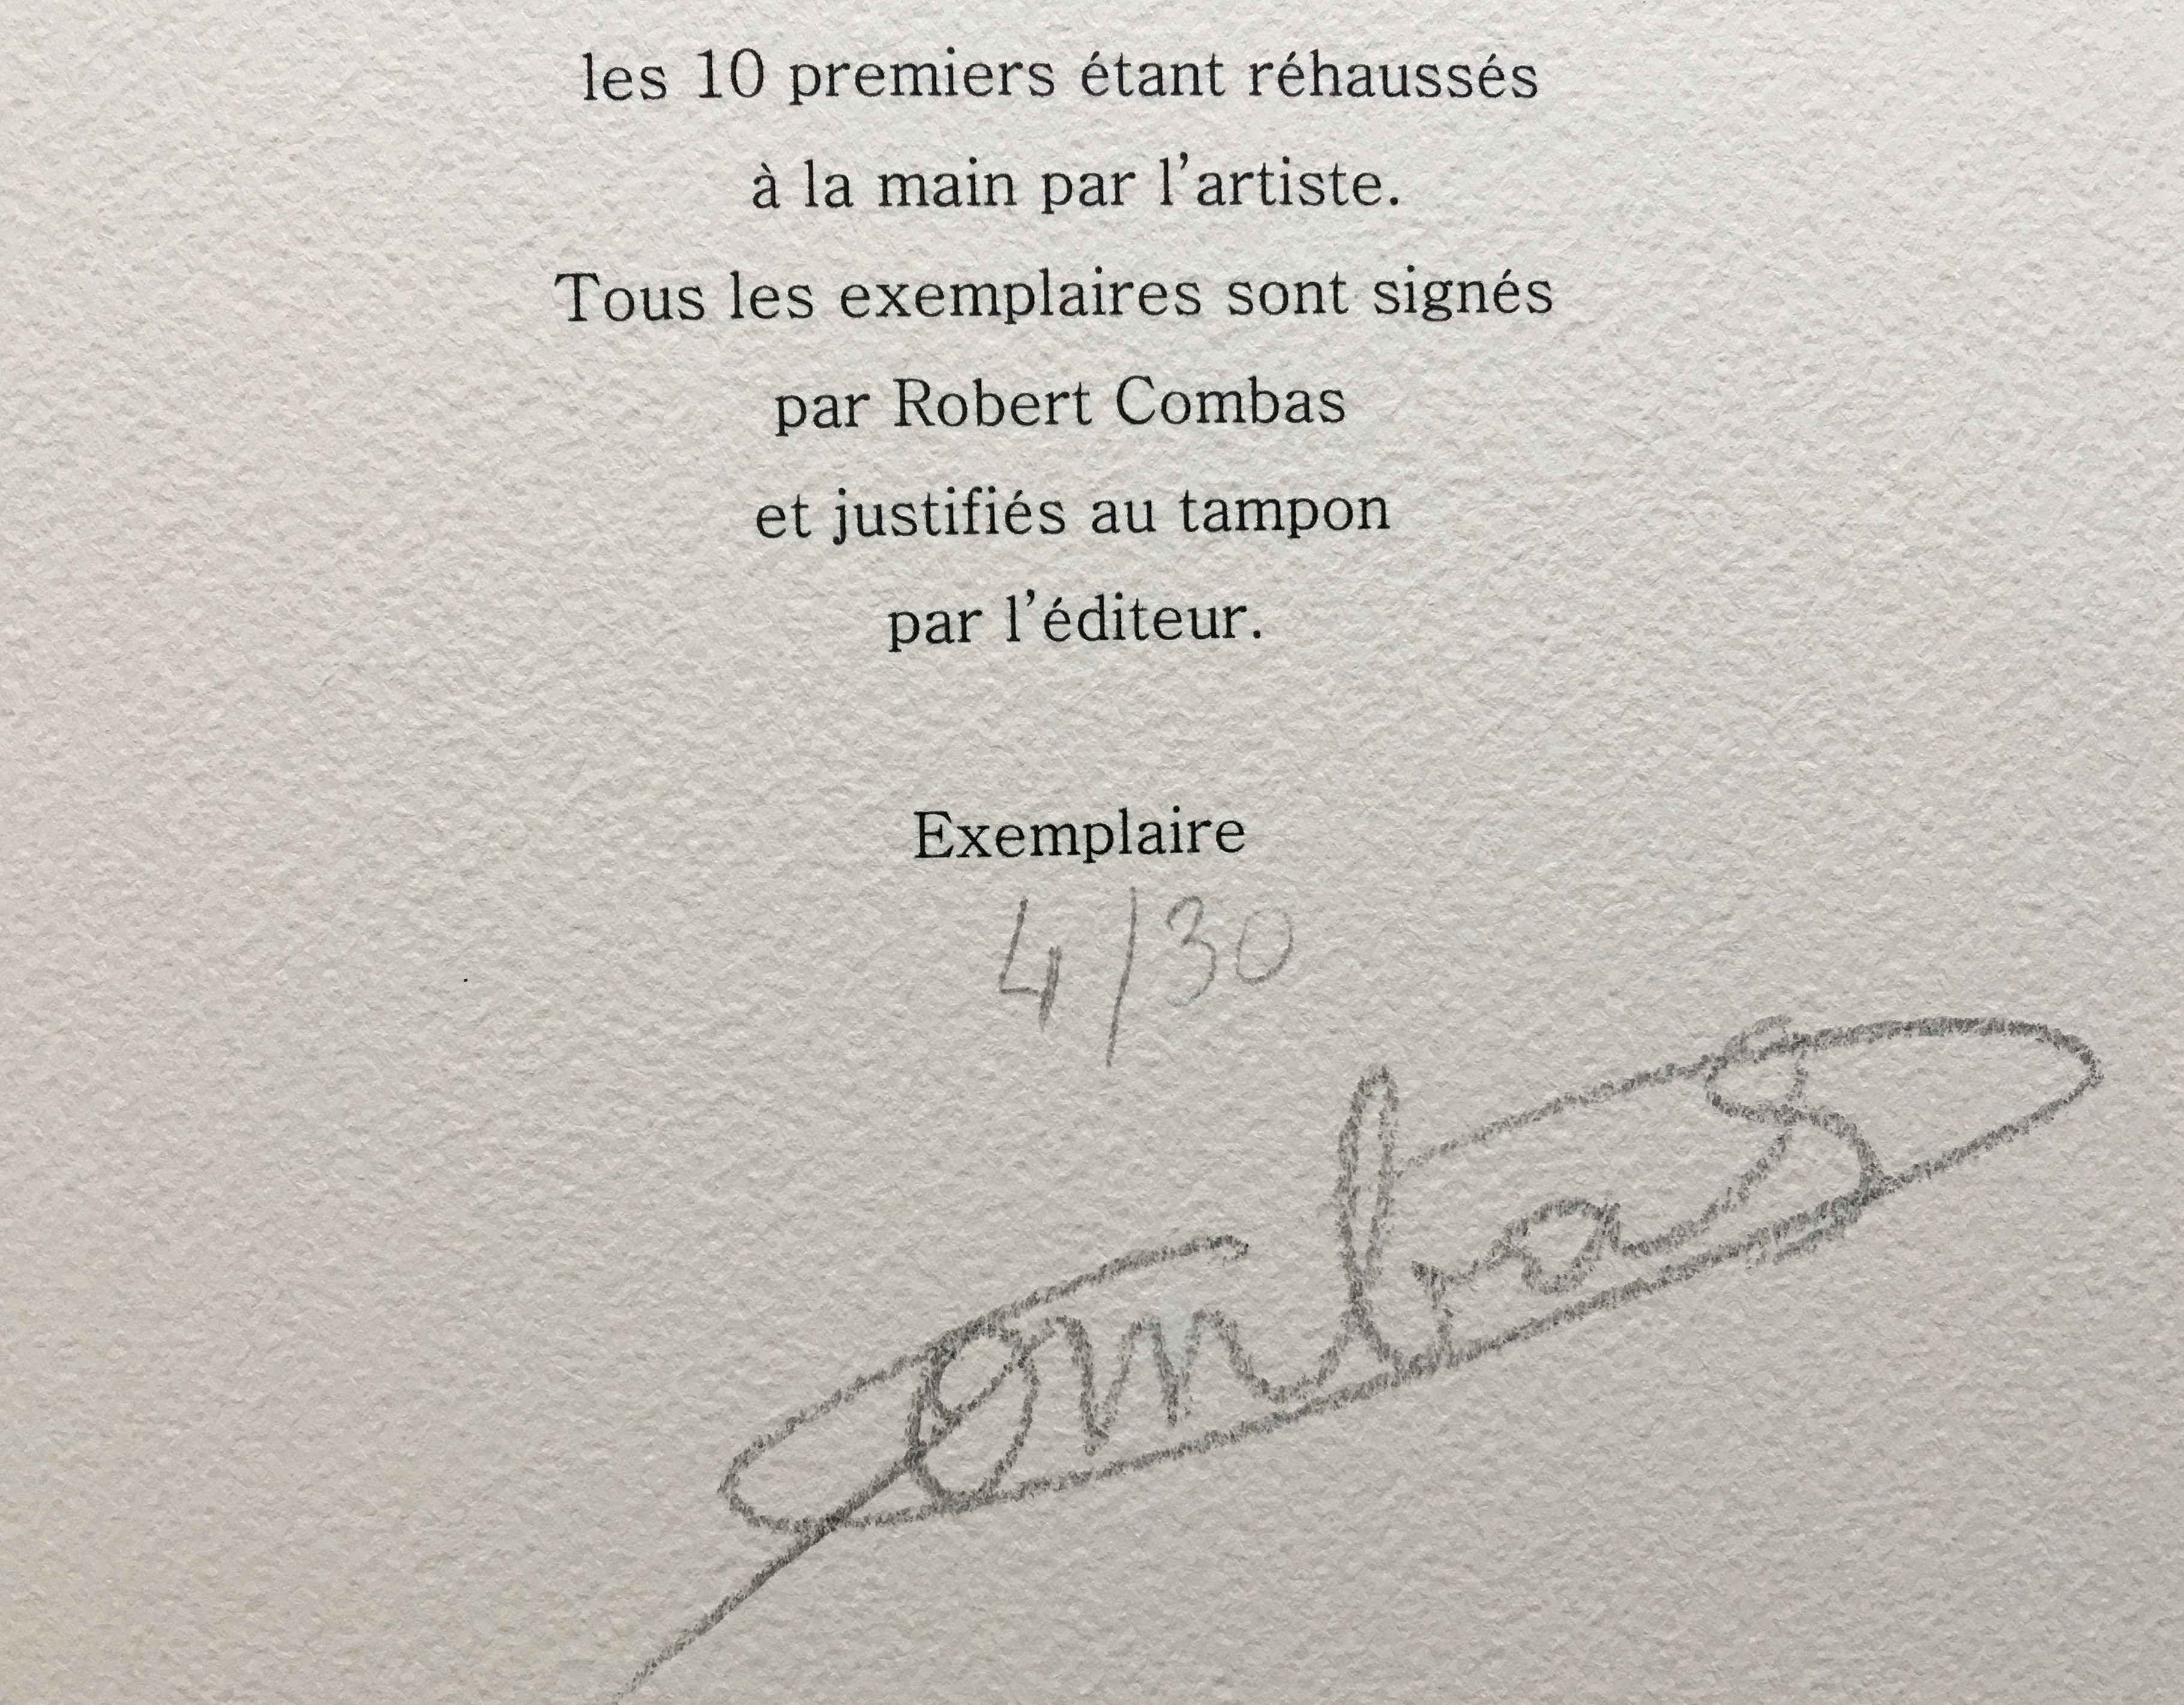 les 10 premiers étant réhaussés
à la main par l'artiste.
Tous les exemplaires sont signés
par Robert Combas
et justifiés au tampon
par l'éditeur.
Exemplaire
4/30
Combas